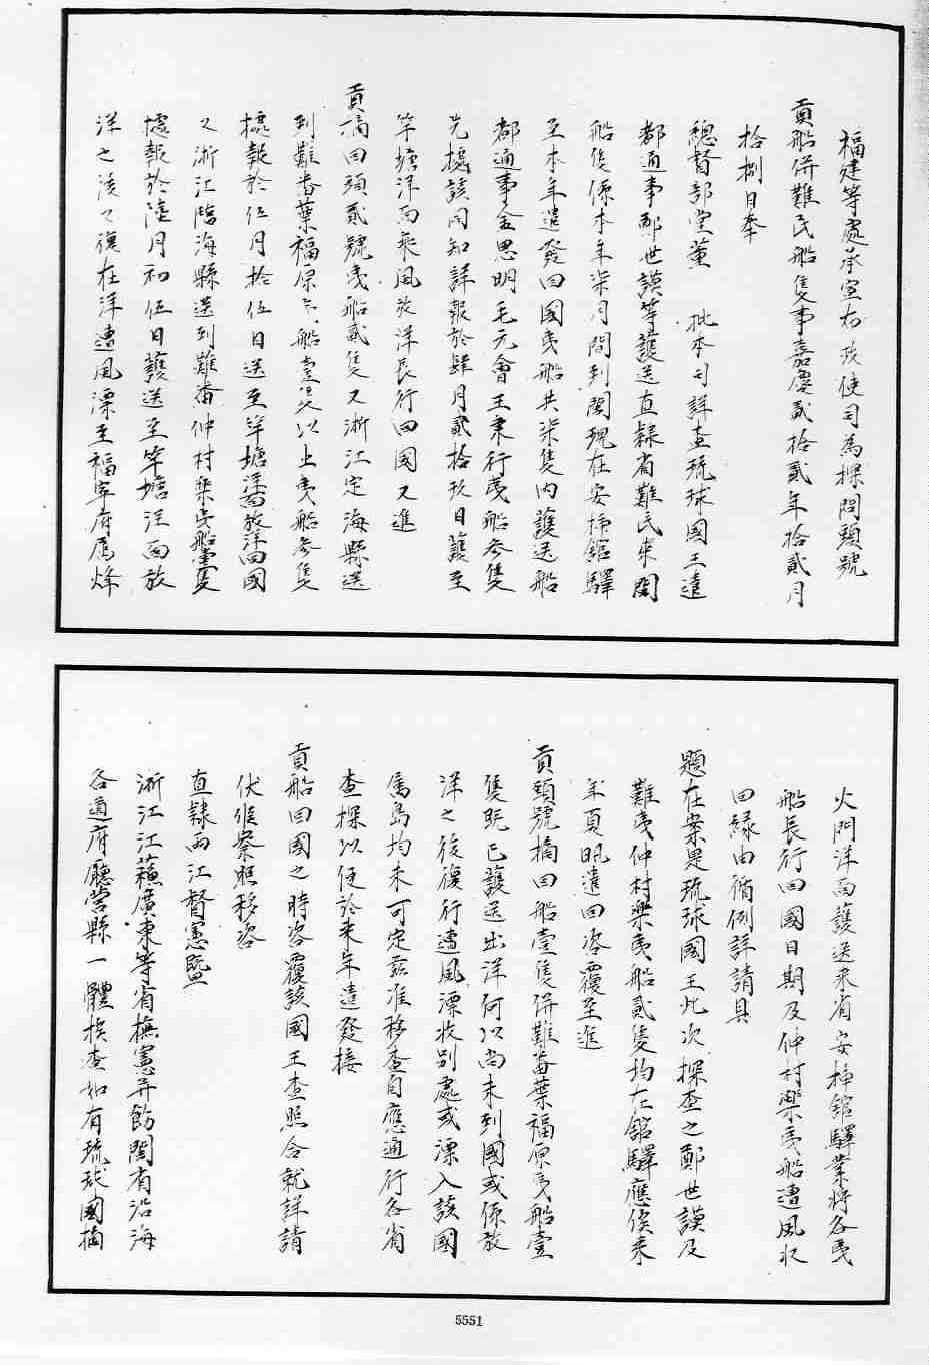 福建等處承宣布政使司為探問頭號
貢船併難民船隻事嘉慶貳拾貳年拾貳月
拾捌日奉
總督部堂董 批本司詳查琉球國王遣
都通事鄭世謨等護送直隸省難民來閩
船隻係本年柒月間到閩現在安揷館驛
至本年遣發回國夷船共柒隻內護送船
都通事金思明毛元會王秉行夷船參隻
先據該同知詳報於肆月貳拾玖日護至
竿塘洋面乘風放洋長行回國又進
貢摘回頭貳號夷船貳隻又浙江定海縣送
到難番葉福原夷船壹隻以上夷船參隻
據報於伍月拾伍日送至竿塘洋面放洋回國
又浙江臨海縣送到難番仲村渠夷船壹隻
據報於陸月初伍日護送至竿塘洋面放
洋之後又復在洋遭風漂至福寧府屬烽
火門洋面護送來省安揷館驛業將各夷
船長行回國日期及仲村渠夷船遭風收
回緣由循例詳請具
題在案是琉球國王此次探查之鄭世謨及
難夷仲村渠夷船貳隻均在館驛應俟來
年夏汛遣回咨覆至進
貢頭號摘回船壹隻併難番葉福原夷船壹
隻既已護送出洋何以尚未到國或係放
洋之後復行遭風漂收別處或漂入該國
屬島均未可定茲准移查自應通行各省
查探以便於來年遣發接
貢船回國之時咨覆該國王查照合就詳請
伏候察照移咨
直隸兩江督憲暨
浙江江蘇廣東等省撫憲并飭閩省沿海
各道府廳營縣一體挨查如有琉球國摘
5551